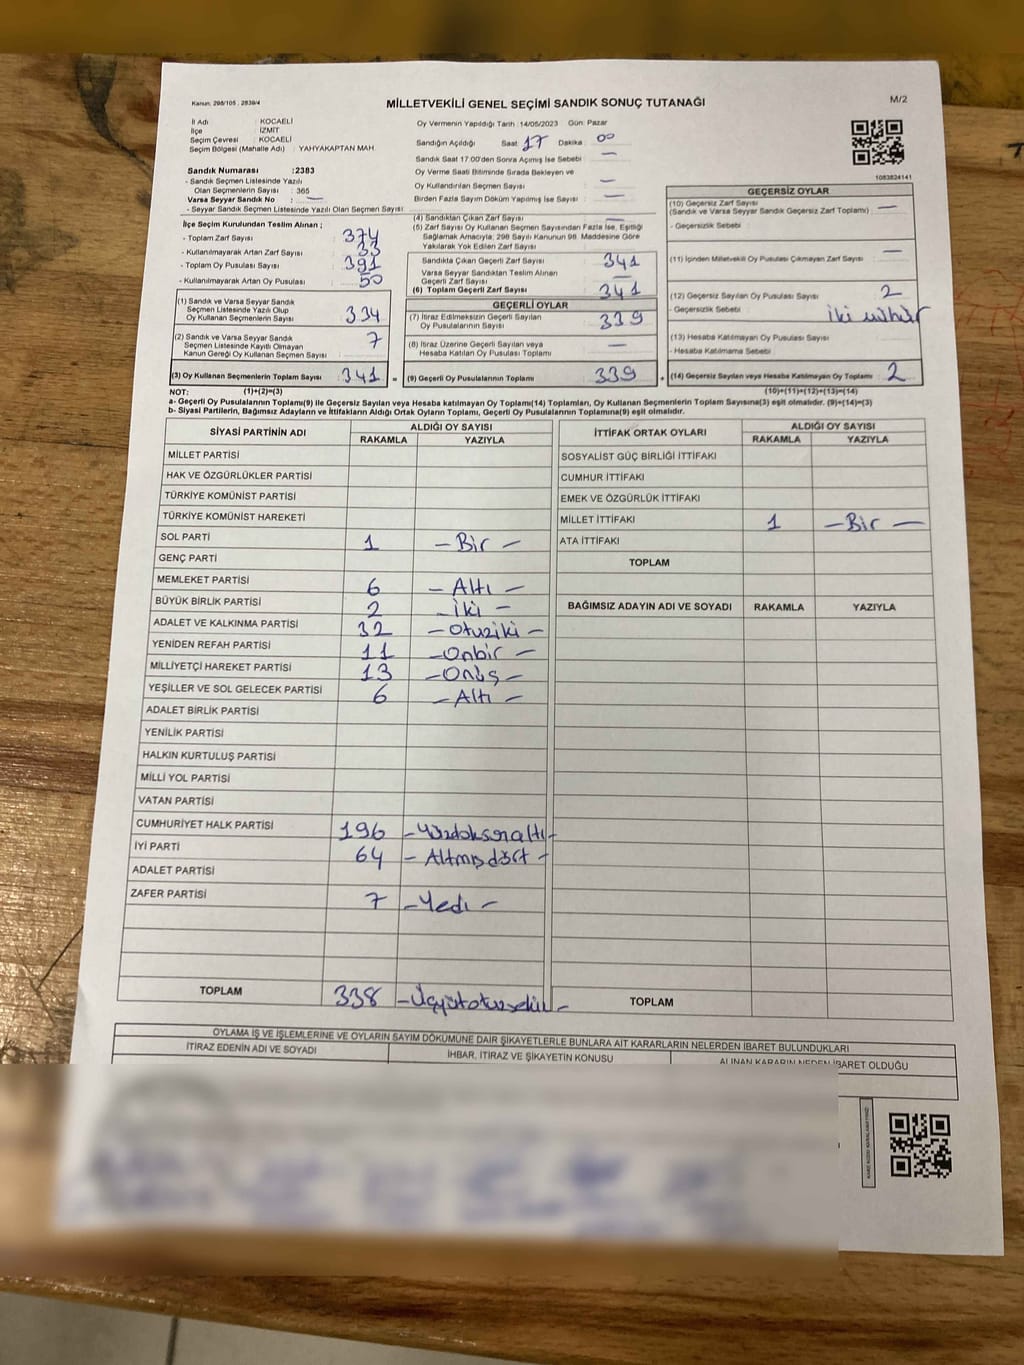 Kanun: 298/105 ; 2839/4
MİLLETVEKİLİ GENEL SEÇİMİ SANDIK SONUÇ TUTANAĞI
M/2
İl Adı : KOCAELİ
İlçe : İZMİT
Seçim Çevresi : KOCAELİ
Seçim Bölgesi (Mahalle Adı) : YAHYAKAPTAN MAH.
Oy Vermenin Yapıldığı Tarih : 14/05/2023 Gün: Pazar
Sandığın Açıldığı Saat : 17 Dakika : 00
Sandık Saat 17:00'den Sonra Açımış İse Sebebi : —
Oy Verme Saati Bitiminde Sırada Bekleyen ve
Oy Kullandırılan Seçmen Sayısı : —
Birden Fazla Sayım Döküm Yapılmış İse Sayısı : —
1083824141
Sandık Numarası :2383
- Sandık Seçmen Listesinde Yazılı
Olan Seçmenlerin Sayısı : 365
Varsa Seyyar Sandık No : —
- Seyyar Sandık Seçmen Listesinde Yazılı Olan Seçmen Sayısı :
İlçe Seçim Kurulundan Teslim Alınan ;
- Toplam Zarf Sayısı : 374
- Kullanılmayarak Artan Zarf Sayısı : 33
- Toplam Oy Pusulası Sayısı : 391
- Kullanılmayarak Artan Oy Pusulası : 50
(1) Sandık ve Varsa Seyyar Sandık
Seçmen Listesinde Yazılı Olup
Oy Kullanan Seçmenlerin Sayısı : 334
(2) Sandık ve Varsa Seyyar Sandık
Seçmen Listesinde Kayıtlı Olmayan
Kanun Gereği Oy Kullanan Seçmen Sayısı : 7
(3) Oy Kullanan Seçmenlerin Toplam Sayısı : 341 =
(4) Sandıktan Çıkan Zarf Sayısı : —
(5) Zarf Sayısı Oy Kullanan Seçmen Sayısından Fazla İse, Eşitliği
Sağlamak Amacıyla; 298 Sayılı Kanunun 98. Maddesine Göre
Yakılarak Yok Edilen Zarf Sayısı : —
Sandıkta Çıkan Geçerli Zarf Sayısı : 341
Varsa Seyyar Sandıktan Teslim Alınan
Geçerli Zarf Sayısı : —
(6) Toplam Geçerli Zarf Sayısı : 341
GEÇERLİ OYLAR
(7) İtiraz Edilmeksizin Geçerli Sayılan
Oy Pusulalarının Sayısı : 339
(8) İtiraz Üzerine Geçerli Sayılan veya
Hesaba Katılan Oy Pusulası Toplamı : —
(9) Geçerli Oy Pusulalarının Toplamı : 339 +
GEÇERSİZ OYLAR
(10) Geçersiz Zarf Sayısı
(Sandık ve Varsa Seyyar Sandık Geçersiz Zarf Toplamı) : —
- Geçersizlik Sebebi :
(11) İçinden Milletvekili Oy Pusulası Çıkmayan Zarf Sayısı : —
(12) Geçersiz Sayılan Oy Pusulası Sayısı : 2
- Geçersizlik Sebebi : iki mühür
(13) Hesaba Katılmayan Oy Pusulası Sayısı :
- Hesaba Katılmama Sebebi :
(14) Geçersiz Sayılan veya Hesaba Katılmayan Oy Toplamı : 2
NOT: (1)+(2)=(3) (10)+(11)+(12)+(13)=(14)
a- Geçerli Oy Pusulalarının Toplamı(9) ile Geçersiz Sayılan veya Hesaba katılmayan Oy Toplamı(14) Toplamları, Oy Kullanan Seçmenlerin Toplam Sayısına(3) eşit olmalıdır. (9)+(14)=(3)
b- Siyasi Partilerin, Bağımsız Adayların ve İttifakların Aldığı Ortak Oyların Toplamı, Geçerli Oy Pusulalarının Toplamına(9) eşit olmalıdır.
SİYASİ PARTİNİN ADI ALDIĞI OY SAYISI
RAKAMLA YAZIYLA
MİLLET PARTİSİ
HAK VE ÖZGÜRLÜKLER PARTİSİ
TÜRKİYE KOMÜNİST PARTİSİ
TÜRKİYE KOMÜNİST HAREKETİ
SOL PARTİ 1 — Bir —
GENÇ PARTİ
MEMLEKET PARTİSİ 6 — Altı —
BÜYÜK BİRLİK PARTİSİ 2 — İki —
ADALET VE KALKINMA PARTİSİ 32 — Otuziki —
YENİDEN REFAH PARTİSİ 11 — Onbir —
MİLLİYETÇİ HAREKET PARTİSİ 13 — Onüş —
YEŞİLLER VE SOL GELECEK PARTİSİ 6 — Altı —
ADALET BİRLİK PARTİSİ
YENİLİK PARTİSİ
HALKIN KURTULUŞ PARTİSİ
MİLLİ YOL PARTİSİ
VATAN PARTİSİ
CUMHURİYET HALK PARTİSİ 196 — Yüzdoksanaltı —
İYİ PARTİ 64 — Altmışdört —
ADALET PARTİSİ
ZAFER PARTİSİ 7 — Yedi —
TOPLAM 338
İTTİFAK ORTAK OYLARI ALDIĞI OY SAYISI
RAKAMLA YAZIYLA
SOSYALİST GÜÇ BİRLİĞİ İTTİFAKI
CUMHUR İTTİFAKI
EMEK VE ÖZGÜRLÜK İTTİFAKI
MİLLET İTTİFAKI 1 — Bir —
ATA İTTİFAKI
TOPLAM
BAĞIMSIZ ADAYIN ADI VE SOYADI RAKAMLA YAZIYLA
TOPLAM
OYLAMA İŞ VE İŞLEMLERİNE VE OYLARIN SAYIM DÖKÜMÜNE DAİR ŞİKAYETLERLE BUNLARA AİT KARARLARIN NELERDEN İBARET BULUNDUKLARI
İTİRAZ EDENİN ADI VE SOYADI İHBAR, İTİRAZ VE ŞİKAYETİN KONUSU ALINAN KARARIN NEDEN İBARET OLDUĞU